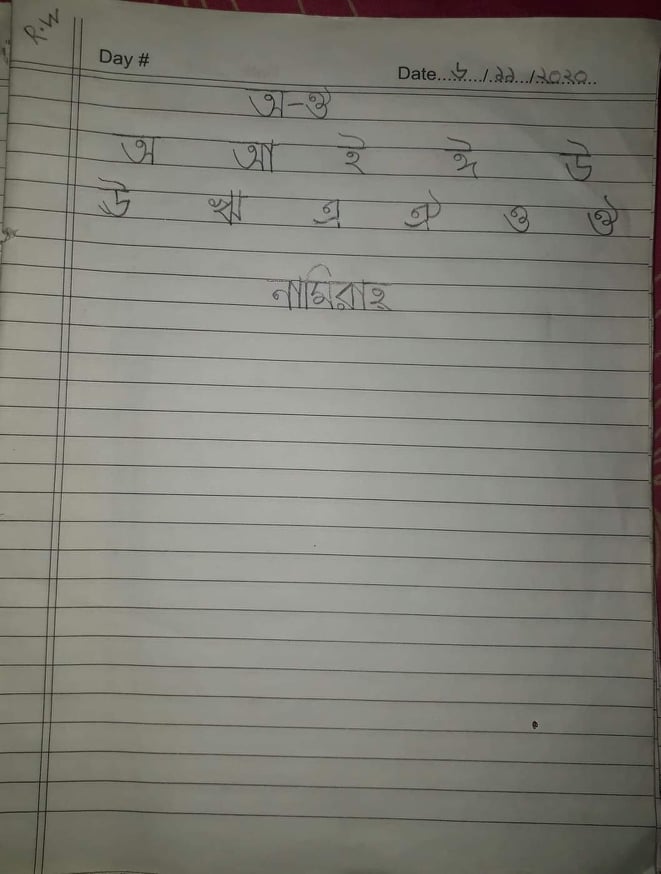 প.দ
Day #
Date...৬.../.১১.../২০২০..
অ-ঔ
অ আ ই ঈ উ
ঊ ঋ এ ঐ ও ঔ
নামিরাহ